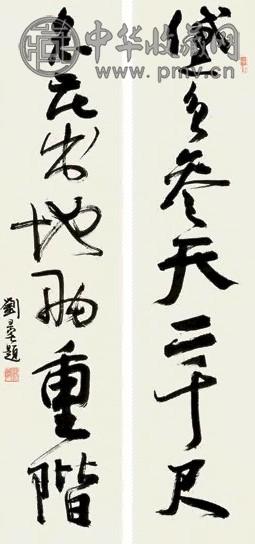 中华收藏网
www.pmv.cn
黛色參天二千尺
名花出地兩重階
劉 題